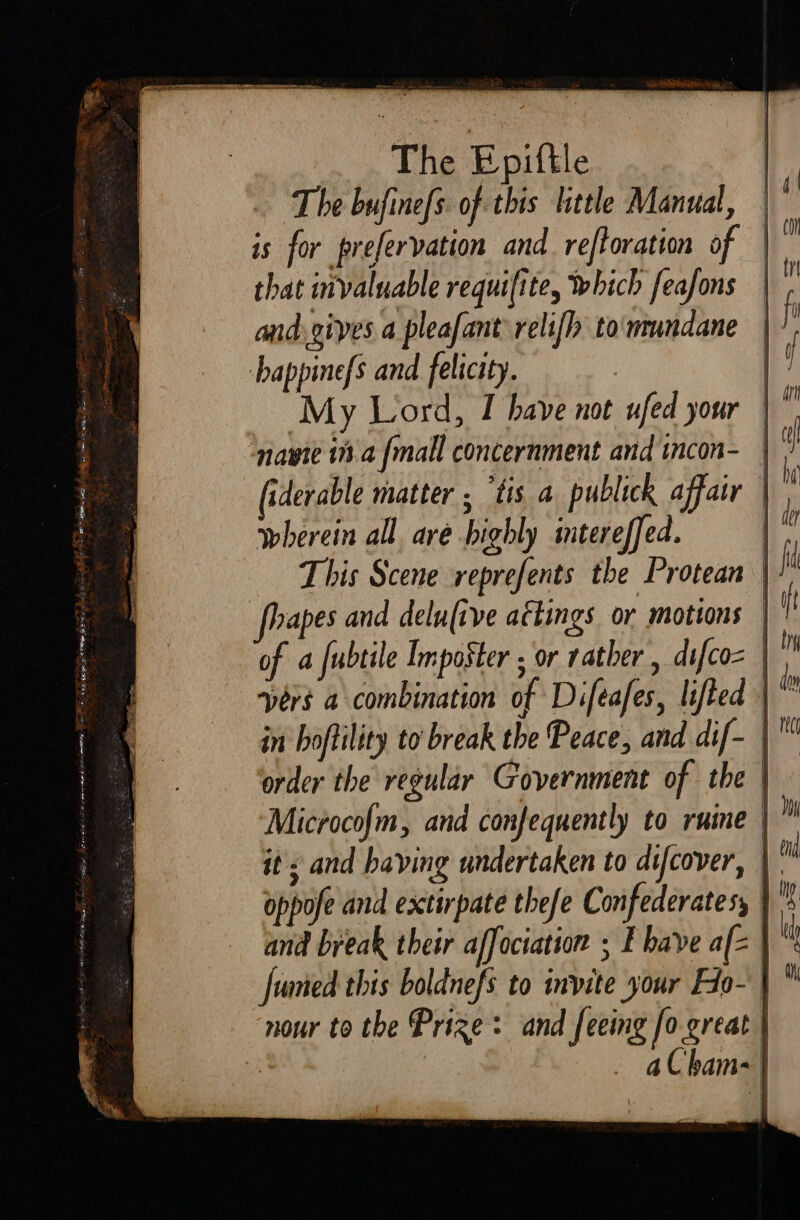 The Epiſtle
The buſineſs of this little Manual,
is for preſervation and reſtoration of
that invaluable requiſite, which ſeaſons
and gives a pleaſant reliſh to mundane
happineſs and felicity.
My Lord, I have not uſed your
name in a ſmall concernment and incon-
ſiderable matter ; 'tis a publick affair
wherein all are highly intereſſed.
This Scene repreſents the Protean
ſhapes and deluſive actings or motions
of a ſubtile Impoſter ; or rather , diſco-
vers a combination of Diſeaſes, liſted
in hoſtility to break the Peace, and diſ-
order the regular Government of the
Microcoſm, and conſequently to ruine
it ; and having undertaken to diſcover,
oppoſe and extirpate theſe Confederates,
and break their aſſociation ; I have aſ-
ſumed this boldneſs to invite your Ho-
nour to the Prize : and ſeeing ſo great
a Cham-